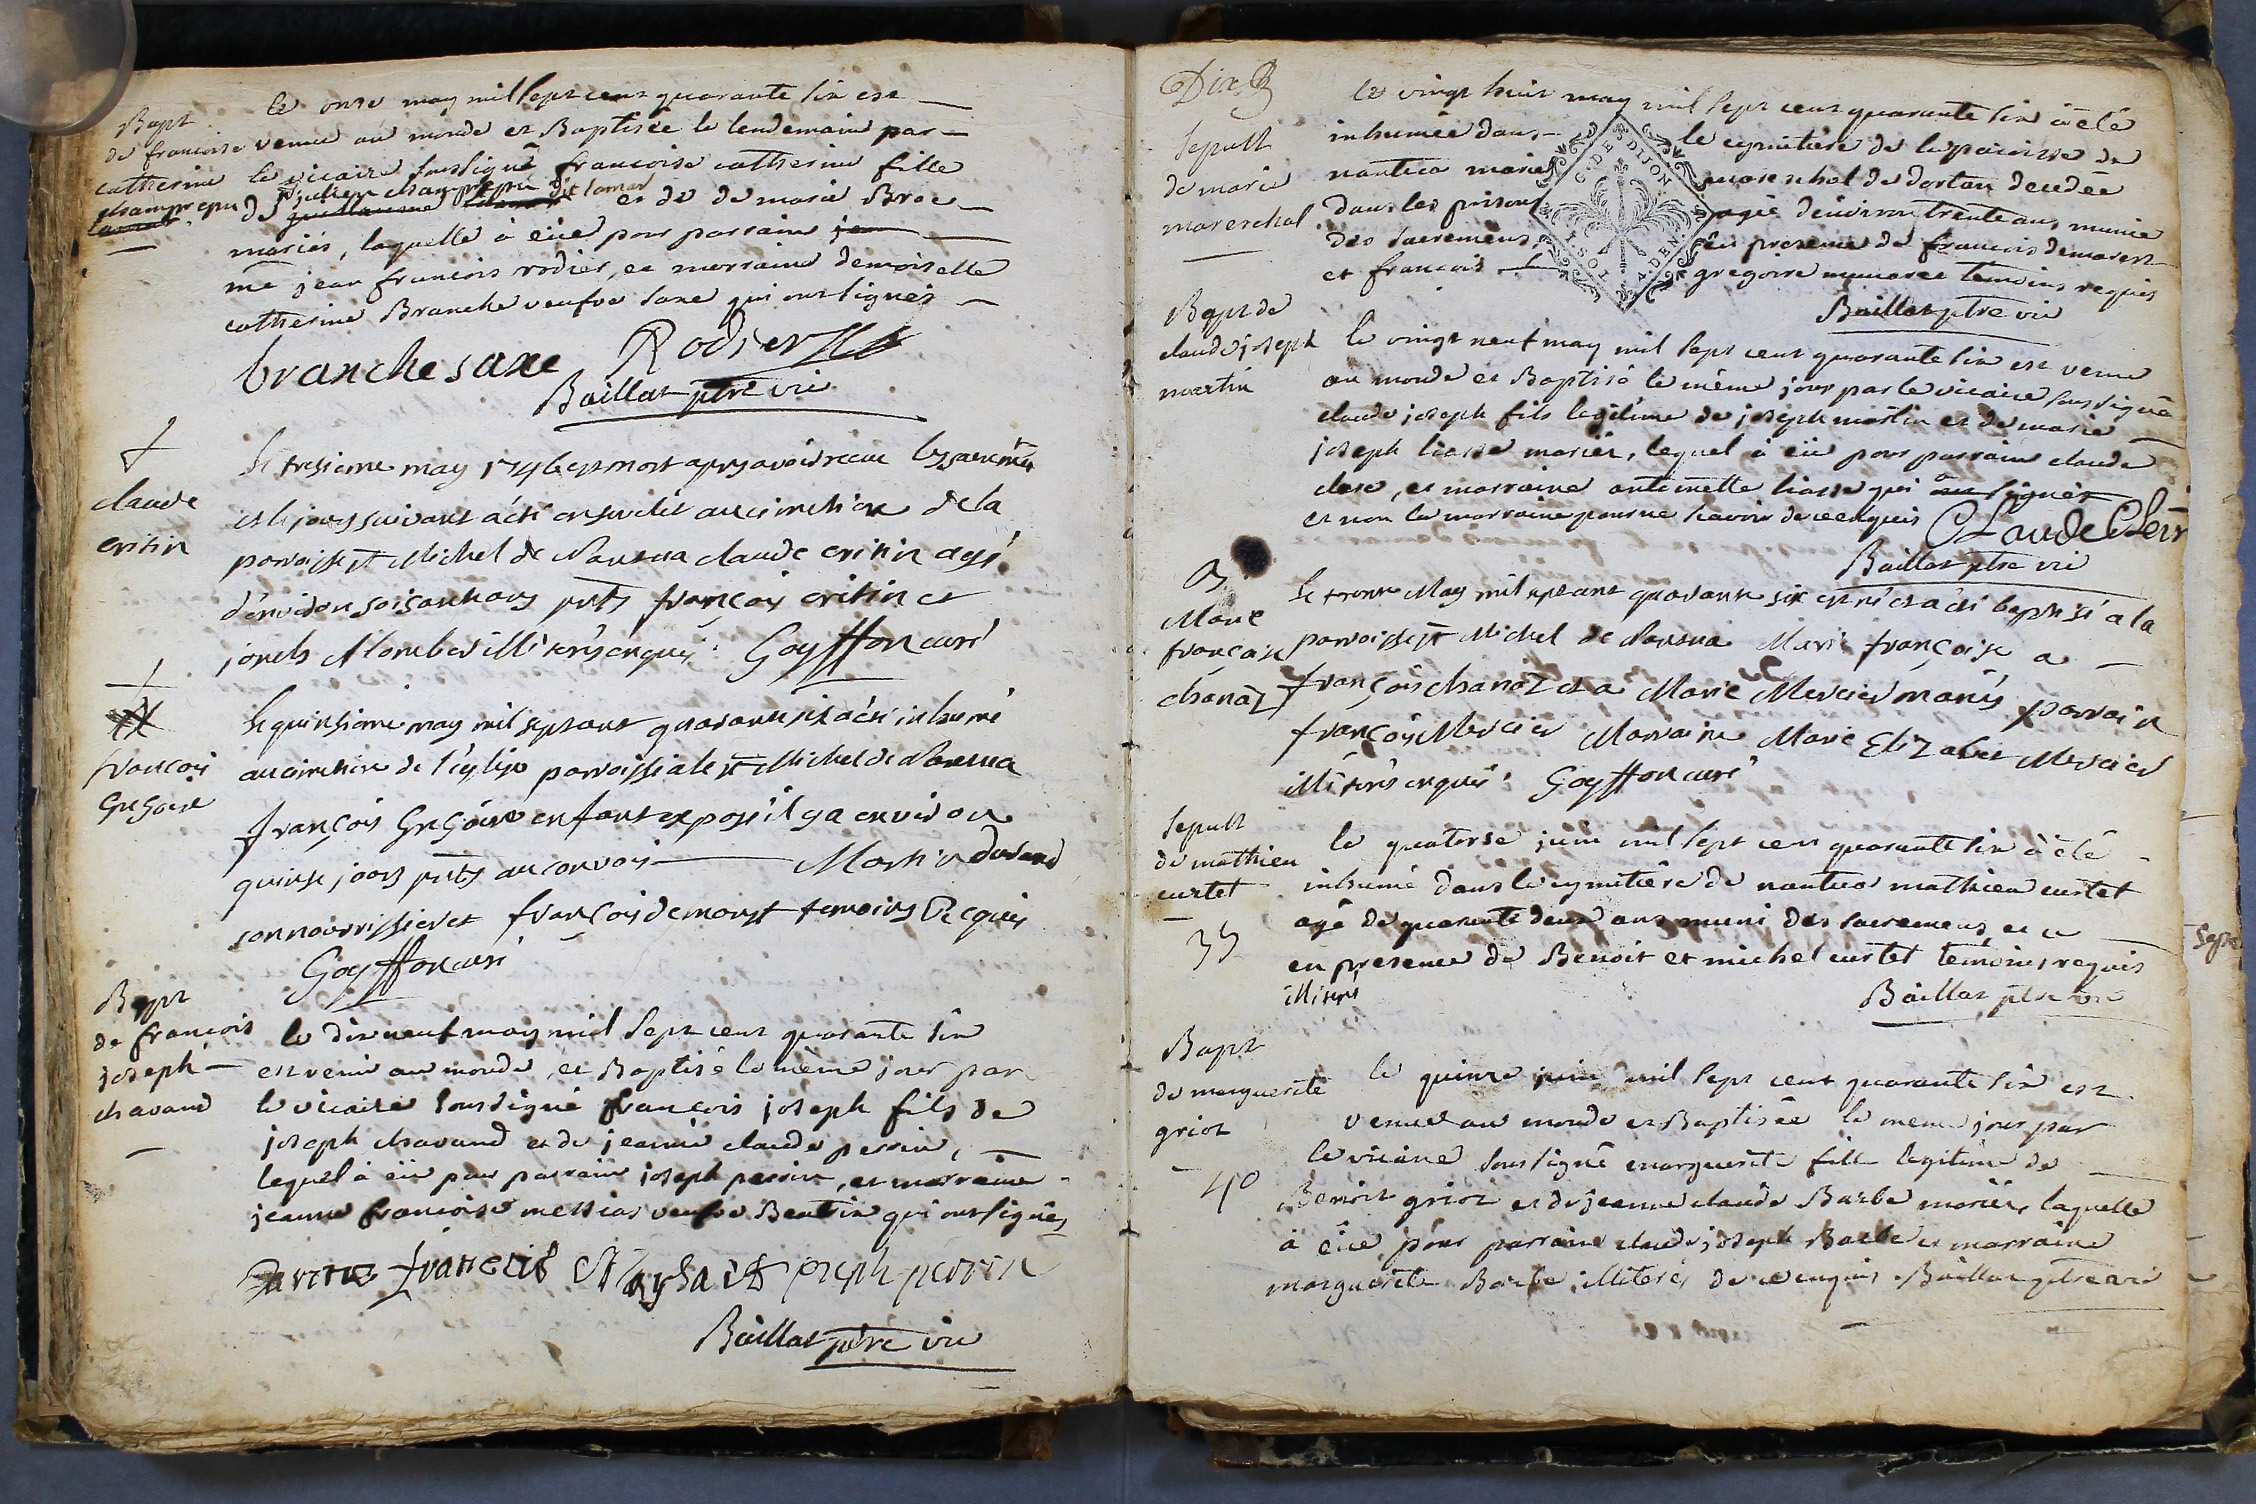 Bapt
de francoise
catherine
champrepu
le onze may mil sept cent quarante six est
venue au monde et Baptisée le lendemain par
le vicaire soussigné francoise catherine fille
de julien champrepu dit lamar et de de marie Broc
mariés, laquelle à eüe pour parrain
me jean francois rodier, et marraine demoiselle
catherine Branche veufve saxe qui ont signés
branche saxe Rodier
Baillat ptre vic
claude
critin
le tresieme may 1746 est mort apres avoir receu les sacremts
et le jour suivant a été ensevelit au cimetiere de la
parroisse st Michel de Nantua claude critin agé
d'environ soisante ans pnts françois critin et
illiterés enquis. Goyffon curé
francois
Gregoire
le quinsieme may mil sept cent quarante six a été inhumé
au cimetiere de l'eglise parroissiale st Michel de Nantua
françois Gregoire enfant exposé il y a environ
quinse jours pnts au convoi Martin durand
son nourrissier et françois demoust temoins Requis
Goyffon curé
Bapt
de francois
joseph
chavand
le dix neuf may mil sept cent quarante six
est venu au monde, et Baptisé le même jour par
le vicaire soussigné francois joseph fils de
joseph chavand et de jeanne claude perrin,
lequel à eü pour parrain joseph perrin, et marraine
jeanne francoise messias veufve Beatrix qui ont signés
joseph perrin
Baillat ptre vic
Dix
Sepult
de marie
mareschal
le vingt huit may mil sept cent quarante six à été
inhumée dans le cymitiere de la paroisse de
nantua marie mareschal de dortan decedée
dans les prisons agée d'environ trente ans munie
des sacremens, en presence de francois demarest
et francois gregoire temoins requis
Baillat ptre vic
G. DE DIJON
Bapt de
claude joseph
martin
le vingt neuf may mil sept cent quarante six est venu
au monde et Baptisé le même jour par le vicaire soussigné
claude joseph fils legitime de joseph martin et de marie
joseph liasse mariés, lequel à eü pour parrain claude
clere, et marraine antoinette liasse qui a signé
et non la marraine pour ne scavoir de ce enquis Claude Cleir
Baillat ptre vic
Marie
françoise
chanaz
le trente May mil sept cent quarante six est né et a été baptisé a la
parroisse st Michel de Nantua Marie françoise a
françois chanaz et a Marie Mercier mariés parrain
françois Mercier Marraine Marie Elizabet Mercier
illiterés enquis. Goyffon curé
Sepult
de mathieu
curtet
39
le quatorse juin mil sept cent quarante six à été
inhumé dans le cymitiere de nantua mathieu curtet
agé de quarante deux ans muni des sacremens et
en presence de Benoit et michel curtet temoins requis
illiterés
Baillat ptre vic
Bapt
de marguerite
griot
40
le quinze juin mil sept cent quarante six est
venue au monde et Baptisée le meme jour par
le vicaire soussigné marguerite fille legitime de
Benoit griot et de jeanne claude Barbe mariés, laquelle
à eüe pour parrain claude joseph Barbe et marraine
marguerite Barbe illiterés de ce enquis Baillat ptre vic